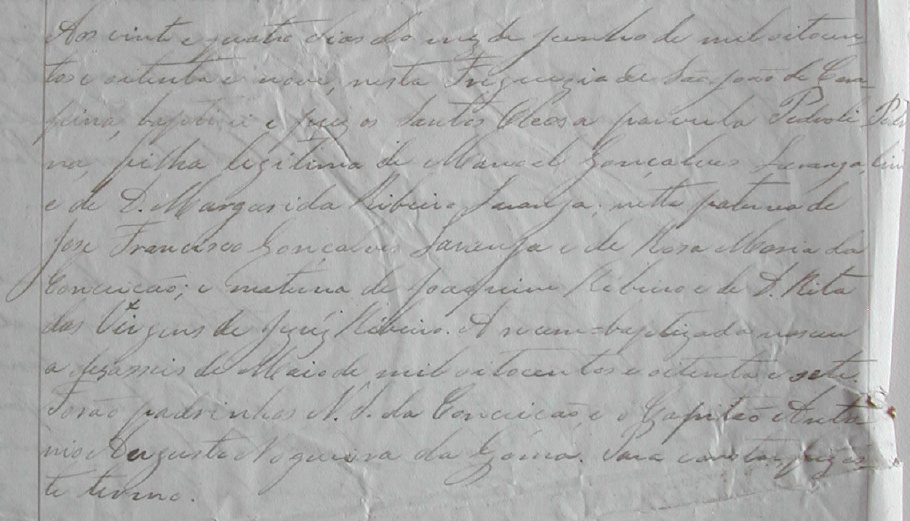 Aos vinte e quatro dias do mez de Junho de mil oitocen
tos e oitenta e nove, nesta Freguezia de São João de Cam-
pina, baptizei e puz os Santos Oleos a parvula
na, filha legitima de Manoel Gonçalves Laranja,
e de D. Margarida Ribeiro Laranja; netta paterna de
José Francisco Gonçalves Laranja e de Rosa Maria da
Conceição; e materna de Joaquim Ribeiro e de D. Rita
das Virgens de Jezúz Ribeiro. A recem-baptizada nasceu
a dezasseis de Maio de mil oitocentos e oitenta e sete.
Forão padrinhos N. S. da Conceição, e o Capitão Anto
nio Augusto Nogueira da Gama. Para constar, fiz es
te termo.